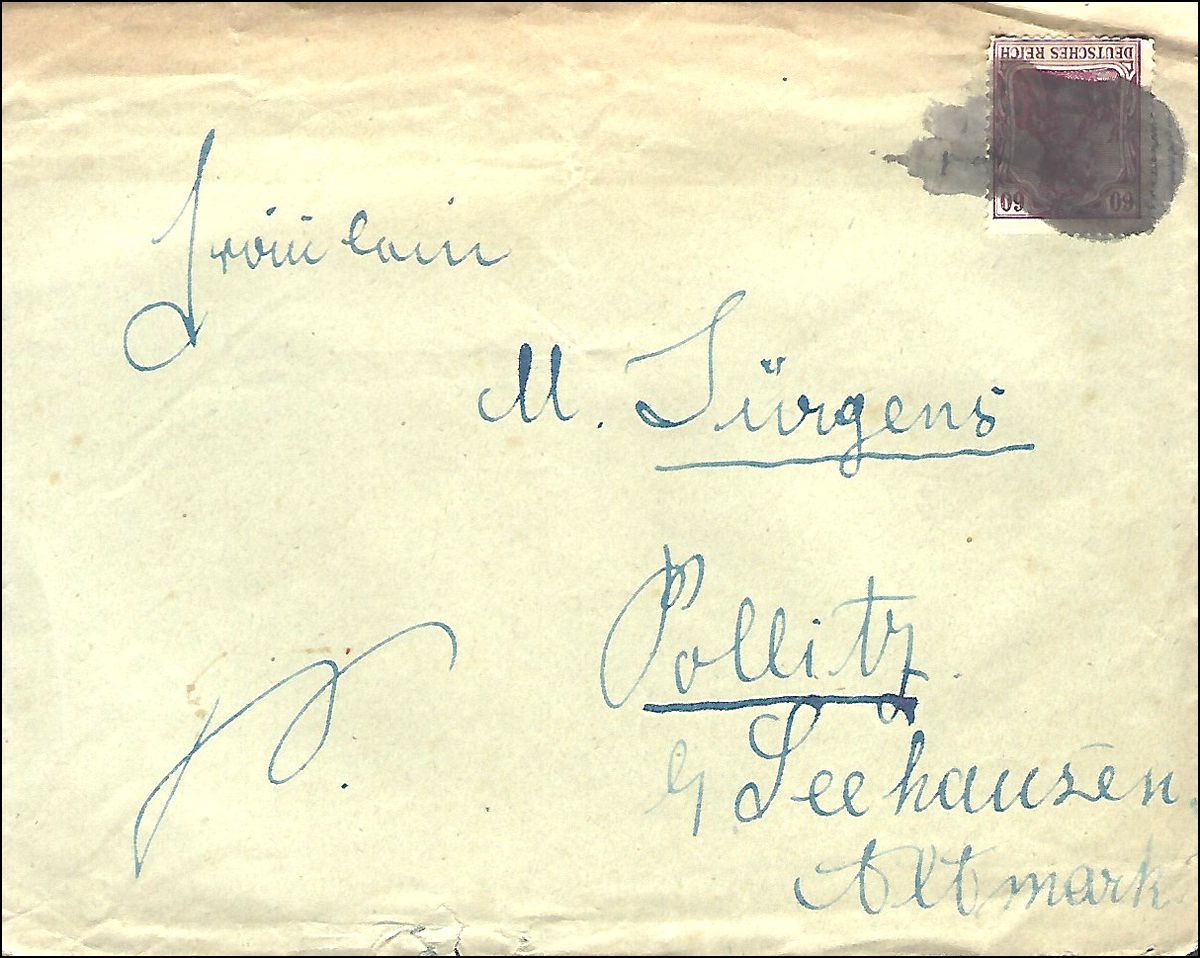 DEUTSCHES REICH
60 60
Fräulein
M. Jürgens
Pollitz.
b/ Seehausen.
Altmark.